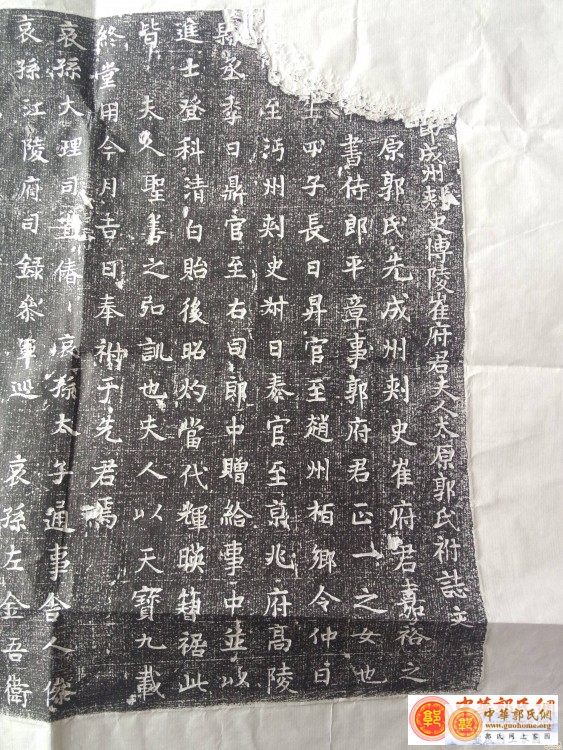 郎成州刾史博陵崔府君夫人太原郭氏祔誌文
原郭氏先成州刾史崔府君嘉裕之
書侍郎平章事郭府君正一之女也
士四子長曰昇官至趙州栢鄉令仲曰
至沔州刾史 曰泰官至京兆府高陵
縣丞季曰鼎官至右司郎中贈給事中並以
進士登科清白貽後昭灼當代輝暎簪裾此
皆 夫人聖善之弘訓也夫人以天寶九載
終堂用今月吉日奉祔于先君焉
哀孫大理司直偆 哀孫太子通事舍人傑
哀孫江陵府司錄叅軍巡 哀孫左金吾衛
中華郭氏網
www.guohome.org
郭氏网上家园